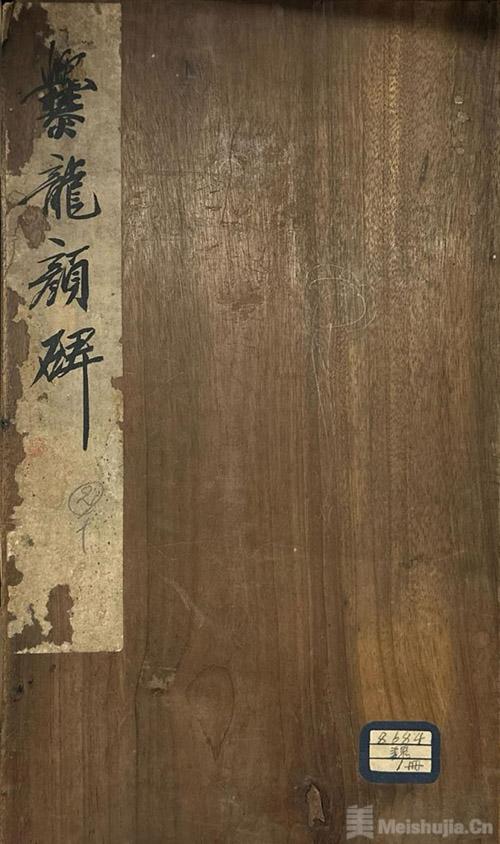 爨龍顏碑
2
8684
1冊
美 Meishujia.Cn